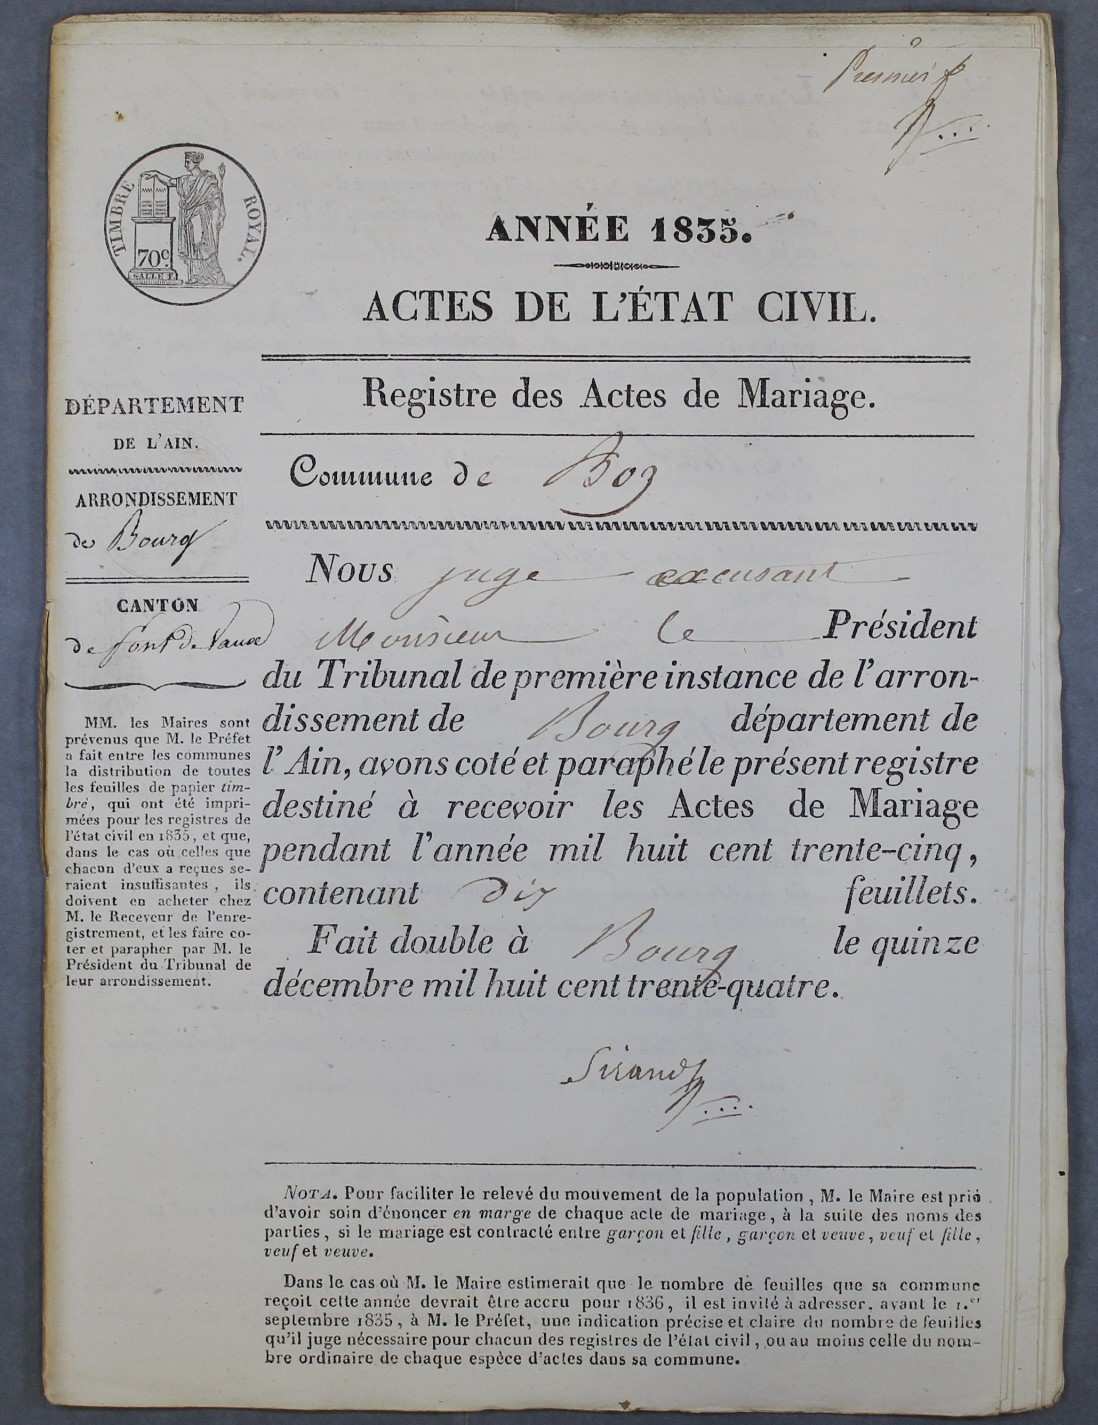 Premier f
TIMBRE ROYAL.
70c.
SALLE F.
ANNÉE 1835.
ACTES DE L'ÉTAT CIVIL.
Registre des Actes de Mariage.
DÉPARTEMENT
DE L'AIN.
ARRONDISSEMENT
de Bourg
CANTON
de Pont de Vaux
MM. les Maires sont
prévenus que M. le Préfet
a fait entre les communes
la distribution de toutes
les feuilles de papier tim-
bré, qui ont été impri-
mées pour les registres de
l'état civil en 1835, et que,
dans le cas où celles que
chacun d'eux a reçues se-
raient insuffisantes, ils
doivent en acheter chez
M. le Receveur de l'enre-
gistrement, et les faire co-
ter et parapher par M. le
Président du Tribunal de
leur arrondissement.
Commune de Boz
Nous juge excusant
Monsieur le Président
du Tribunal de première instance de l'arron-
dissement de Bourg département de
l'Ain, avons coté et paraphé le présent registre
destiné à recevoir les Actes de Mariage
pendant l'année mil huit cent trente-cinq,
contenant dix feuillets.
Fait double à Bourg le quinze
décembre mil huit cent trente-quatre.
Sirand
NOTA. Pour faciliter le relevé du mouvement de la population, M. le Maire est prié
d'avoir soin d'énoncer en marge de chaque acte de mariage, à la suite des noms des
parties, si le mariage est contracté entre garçon et fille, garçon et veuve, veuf et fille,
veuf et veuve.
Dans le cas où M. le Maire estimerait que le nombre de feuilles que sa commune
reçoit cette année devrait être accru pour 1836, il est invité à adresser, avant le 1.er
septembre 1835, à M. le Préfet, une indication précise et claire du nombre de feuilles
qu'il juge nécessaire pour chacun des registres de l'état civil, ou au moins celle du nom-
bre ordinaire de chaque espèce d'actes dans sa commune.